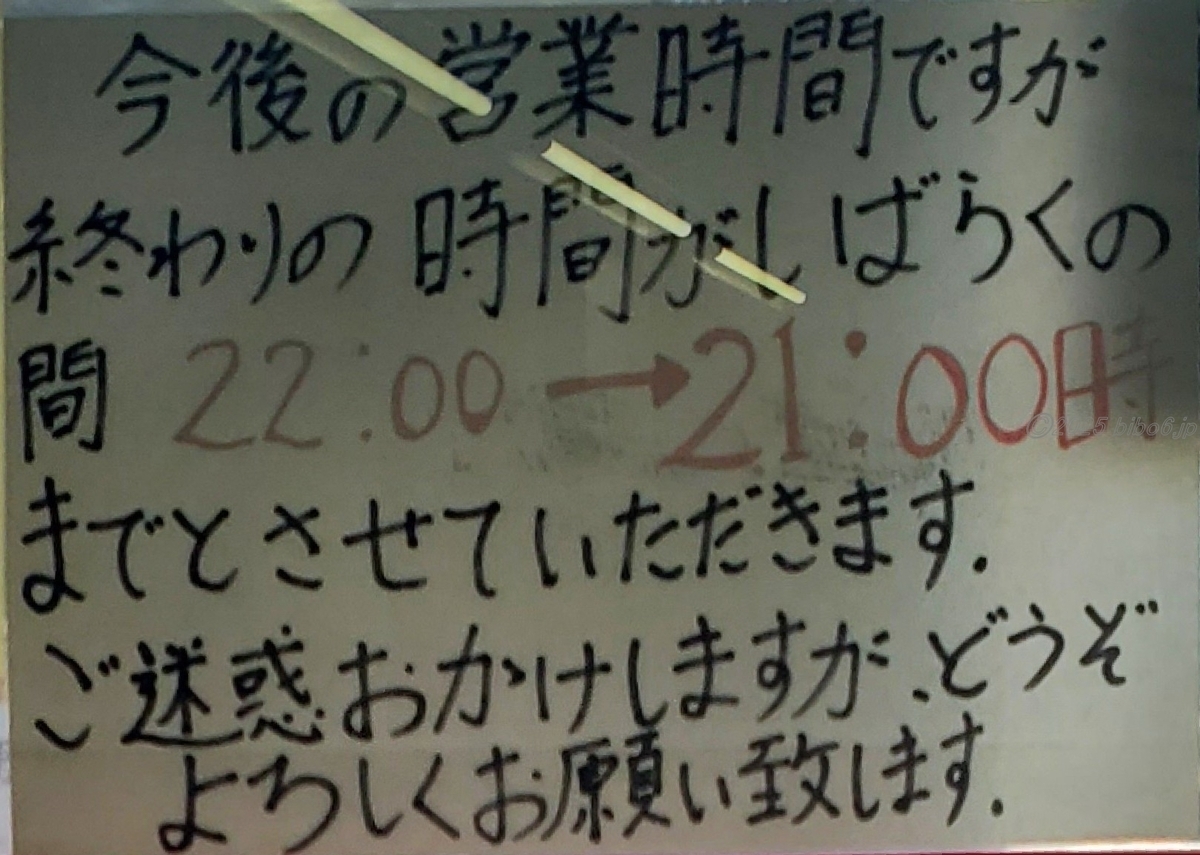 今後の営業時間ですが
終わりの時間がしばらくの
間 22:00→21:00時
までとさせていただきます.
ご迷惑おかけしますが、どうぞ
よろしくお願い致します.